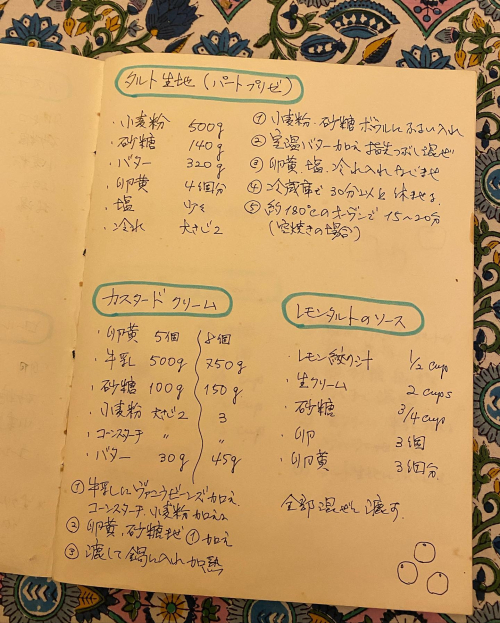 タルト生地（パートブリゼ）
・小麦粉 500g
・砂糖 140g
・バター 320g
・卵黄 4個分
・塩 少々
・冷水 大さじ2
① 小麦粉、砂糖 ボウルにふるい入れ
② 室温バター加え 指先つぶし混ぜ
③ 卵黄、塩、冷水入れまぜ
④ 冷蔵庫で 30分以上 休ませる.
⑤ 約180℃のオーブンで 15〜20分
（空焼きの場合）
カスタードクリーム
・卵黄 5個 8個
・牛乳 500g 750g
・砂糖 100g 150g
・小麦粉 大さじ2 3
・コーンスターチ 〃 〃
・バター 30g 45g
① 牛乳にヴァニラビーンズ加え.
コーンスターチ、小麦粉 加える
② 卵黄、砂糖まぜ ①加え
③ 漉して 鍋に入れ 加熱
レモンタルトのソース
・レモン絞り汁 1/2 cup
・生クリーム 2 cups
・砂糖 3/4 cup
・卵 3個
・卵黄 3個分
全部混ぜて 漉す.